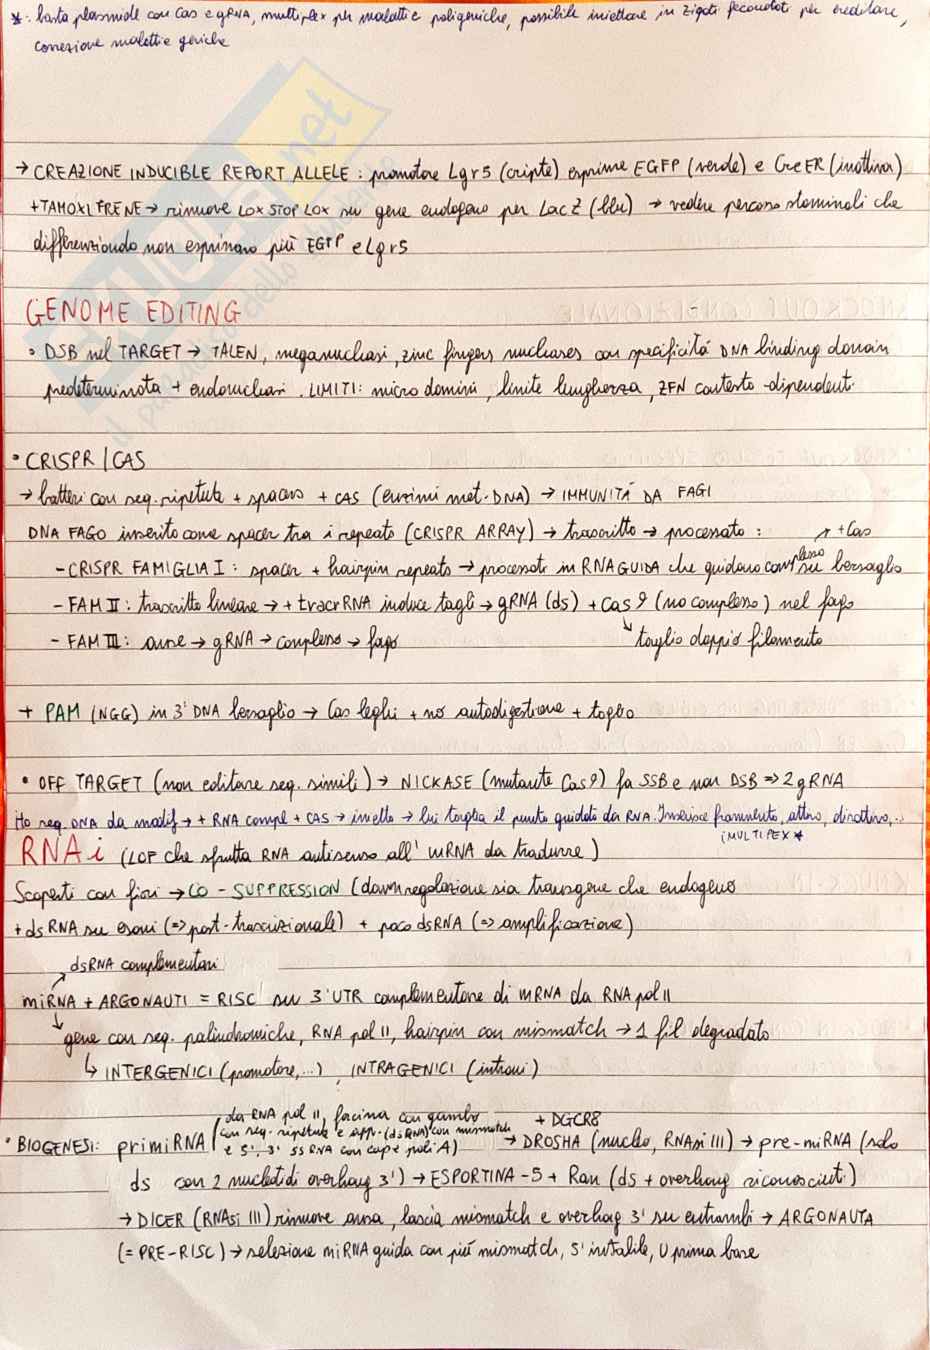 *: basta plasmide con Cas e gRNA, multiplex per malattie poligeniche, possibile iniettare in zigoti fecondati per ereditare,
correzione malattie geniche
→ CREAZIONE INDUCIBLE REPORT ALLELE: promotore Lgr5 (cripte) esprime EGFP (verde) e CreER (inattiva)
+TAMOXIFENE → rimuove LOX STOP LOX su gene endogeno per LacZ (blu) → vedere percorso staminali che
differenziando non esprimono più EGFP e Lgr5
GENOME EDITING
• DSB nel TARGET → TALEN, meganucleasi, zinc fingers nucleases con specificità DNA binding domain
predeterminata + endonucleasi. LIMITI: micro domini, limite lunghezza, ZFN contesto-dipendent.
• CRISPR/CAS
→ batteri con seq. ripetute + spacers + CAS (enzimi met. DNA) → IMMUNITÁ DA FAGI
DNA FAGO inserito come spacer tra i repeats (CRISPR ARRAY) → trascritto → processato: ↗ +Cas
- CRISPR FAMIGLIA I: spacer + hairpin repeats → processati in RNA GUIDA che guidano complesso su bersaglio
- FAM II: trascritto lineare → + tracrRNA induce tagli → gRNA (ds) + Cas9 (no complesso) nel fago
↳ taglio doppio filamento
- FAM III: anse → gRNA → complesso → fago
+ PAM (NGG) in 3' DNA bersaglio → Cas leghi + no autodigestione + taglio
• OFF TARGET (non editare seq. simili) → NICKASE (mutante Cas9) fa SSB e non DSB ⇒ 2 gRNA
Ho seq. DNA da modif → + RNA compl + CAS → inietto → lui taglia il punto guidato da RNA. Inserisce frammento, attivo, disattivo,..
(MULTIPEX *
RNAi (LOF che sfrutta RNA antisenso all' mRNA da tradurre)
Scoperti con fiori → CO-SUPPRESSION (downregolazione sia transgene che endogeno
+ dsRNA su esoni (⇒ post-trascrizionale) + poco dsRNA (⇒ amplificazione)
dsRNA complementari
miRNA + ARGONAUTI = RISC su 3'UTR complementare di mRNA da RNA pol II
gene con seq. palindromiche, RNA pol II, hairpin con mismatch → 1 fil degradato
↳ INTERGENICI (promotore,...), INTRAGENICI (introni)
• BIOGENESI: primiRNA (da RNA pol II, forcina con gamba
con seq. ripetute e (dsRNA) con mismatch
e 5', 3' ssRNA con cap e poli A) + DGCR8
→ DROSHA (nucleo, RNAsi III) → pre-miRNA (solo
ds con 2 nucleotidi overhang 3') → ESPORTINA-5 + Ran (ds + overhang riconosciuti)
→ DICER (RNAsi III) rimuove ansa, lascia mismatch e overhang 3' su entrambi → ARGONAUTA
(= PRE-RISC) → selezione miRNA guida con più mismatch, 5' instabile, U prima base